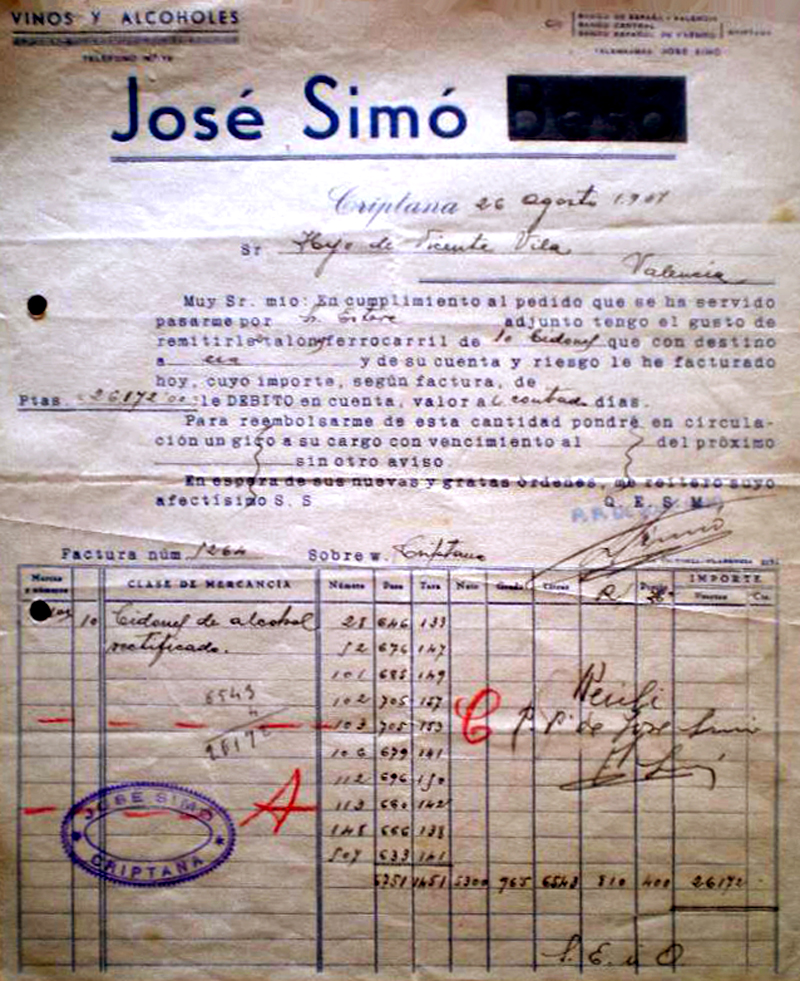 VINOS Y ALCOHOLES
TELÉFONO Nº 19
BANCO DE ESPAÑA - VALENCIA
BANCO CENTRAL
BANCO ESPAÑOL DE CRÉDITO
CRIPTANA
TELEGRAMAS JOSÉ SIMÓ
José Simó
Criptana 26 agosto 19
Sr Hijo de Vicente Vila
Valencia
Muy Sr. mio: En cumplimiento al pedido que se ha servido
pasarme por Sr. Esteve adjunto tengo el gusto de
remitirle talón ferrocarril de 10 bidones que con destino
a esa y de su cuenta y riesgo le he facturado
hoy, cuyo importe, según factura, de
Ptas. 26172'00 le DEBITO en cuenta, valor al contado días.
Para reembolsarme de esta cantidad pondré en circula-
ción un giro a su cargo con vencimiento al del próximo
sin otro aviso.
En espera de sus nuevas y gratas órdenes, me reitero suyo
afectísimo S. S Q. E. S. M.
Factura núm 1264 Sobre w. Criptana
Marcas y números CLASE DE MERCANCIA Número Peso Tara Neto Grado Litros Precio IMPORTE
Pesetas Cts.
10 Bidones de alcohol 28 646 133
rectificado. 52 676 147
101 685 149
6543 102 705 157 Recibí
4 103 705 153 C P. P. de José Simó
26172 106 679 141
112 696 150
A 113 660 142
JOSE SIMÓ 148 666 138
CRIPTANA 507 633 141
6751 1451 5300 965 6543 810 400 26172
S. E. ú O